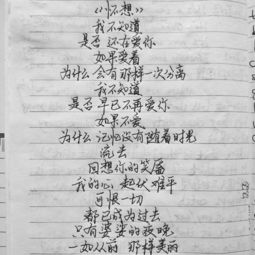 《怀想》
我不知道
是否还在爱你
如果爱着
为什么会有那样一次分离
我不知道
是否早已不再爱你
如果不爱
为什么记忆没有随着时光
流去
回想你的笑靥
我的心起伏难平
可恨一切
都已成为过去
只有婆娑的夜晚
一如从前那样美丽